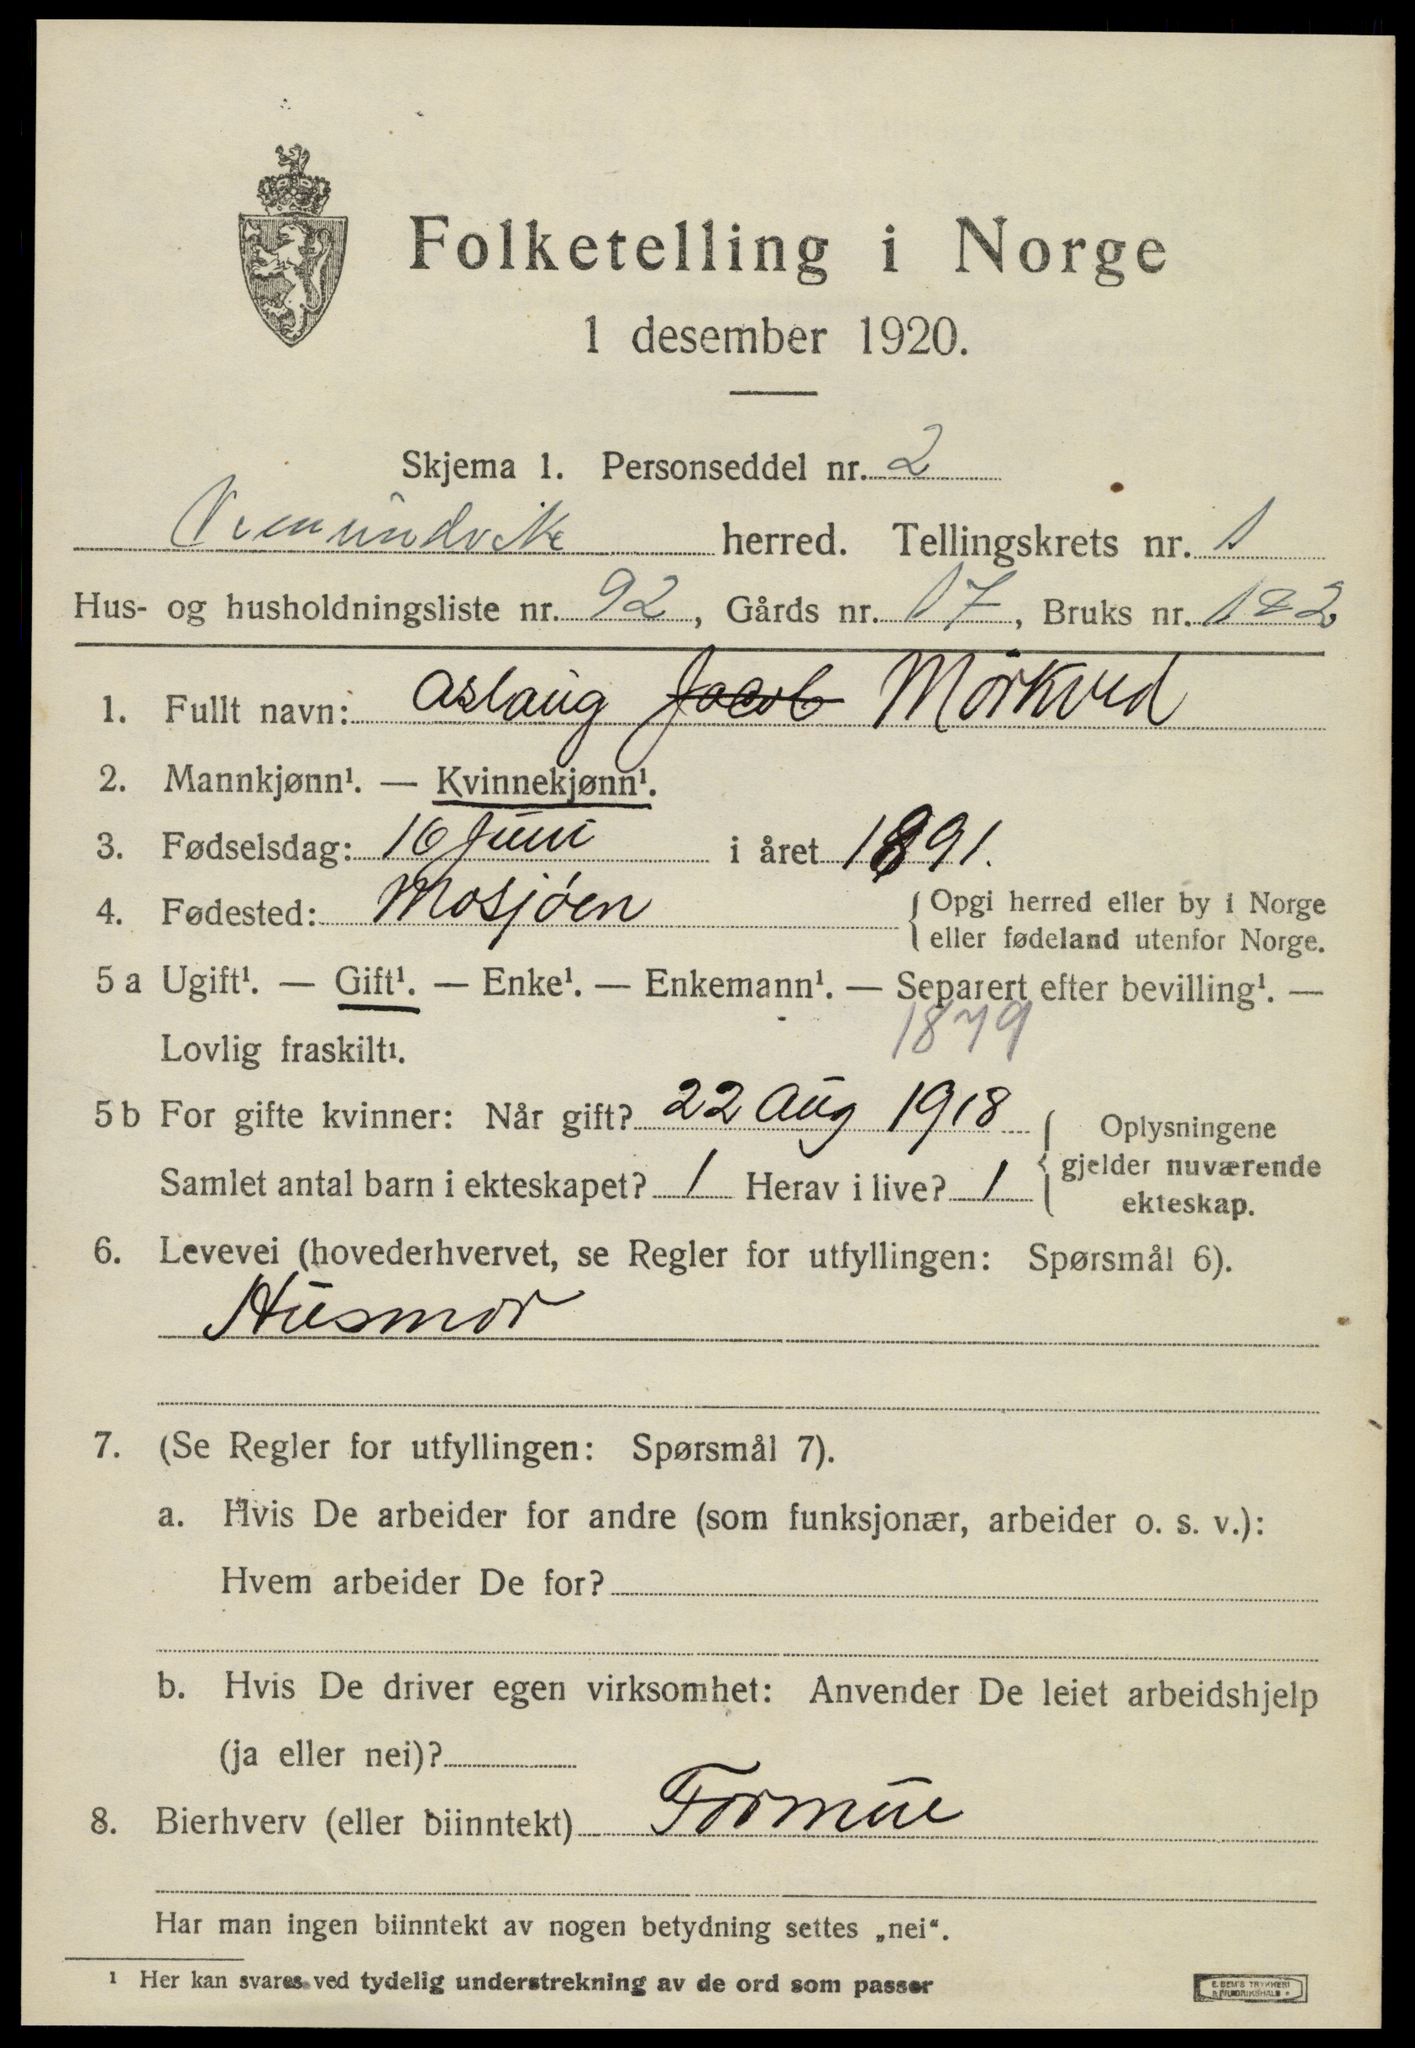 Folketelling i Norge
1 desember 1920.
Skjema 1. Personseddel nr. 2
Vemundvik herred. Tellingskrets nr. 1
Hus- og husholdningsliste nr. 92, Gårds nr. 17, Bruks nr. 122
1. Fullt navn: Aslaug Jacob Mørkved
2. Mannkjønn¹. — Kvinnekjønn¹.
3. Fødselsdag: 16 Juni i året 1891.
4. Fødested: Mosjøen { Opgi herred eller by i Norge
eller fødeland utenfor Norge.
5 a Ugift¹. — Gift¹. — Enke¹. — Enkemann¹. — Separert efter bevilling¹. —
1879
Lovlig fraskilt¹.
5 b For gifte kvinner: Når gift? 22 Aug 1918 { Oplysningene
gjelder nuværende
Samlet antal barn i ekteskapet? 1 Herav i live? 1
ekteskap.
6. Levevei (hovederhvervet, se Regler for utfyllingen: Spørsmål 6).
Husmor
7. (Se Regler for utfyllingen: Spørsmål 7).
a. Hvis De arbeider for andre (som funksjonær, arbeider o. s. v.):
Hvem arbeider De for?
b. Hvis De driver egen virksomhet: Anvender De leiet arbeidshjelp
(ja eller nei)?
8. Bierhverv (eller biinntekt) Formue
Har man ingen biinntekt av nogen betydning settes „nei“.
¹ Her kan svares ved tydelig understrekning av de ord som passer
E. SEM'S TRYKKERI
FREDRIKSHALD